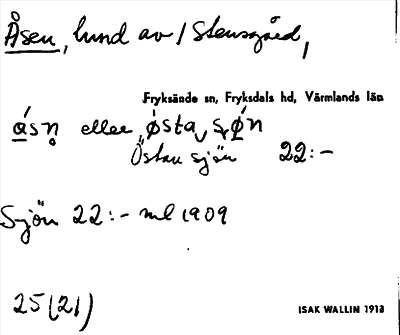 Åsen, lund av / Stensgård,
Fryksände sn, Fryksdals hd, Värmlands län
ásn̥ eller ǿsta sǿn
Östan sjön 22:-
Sjön 22:- ml 1909
25(21)
ISAK WALLIN 1913